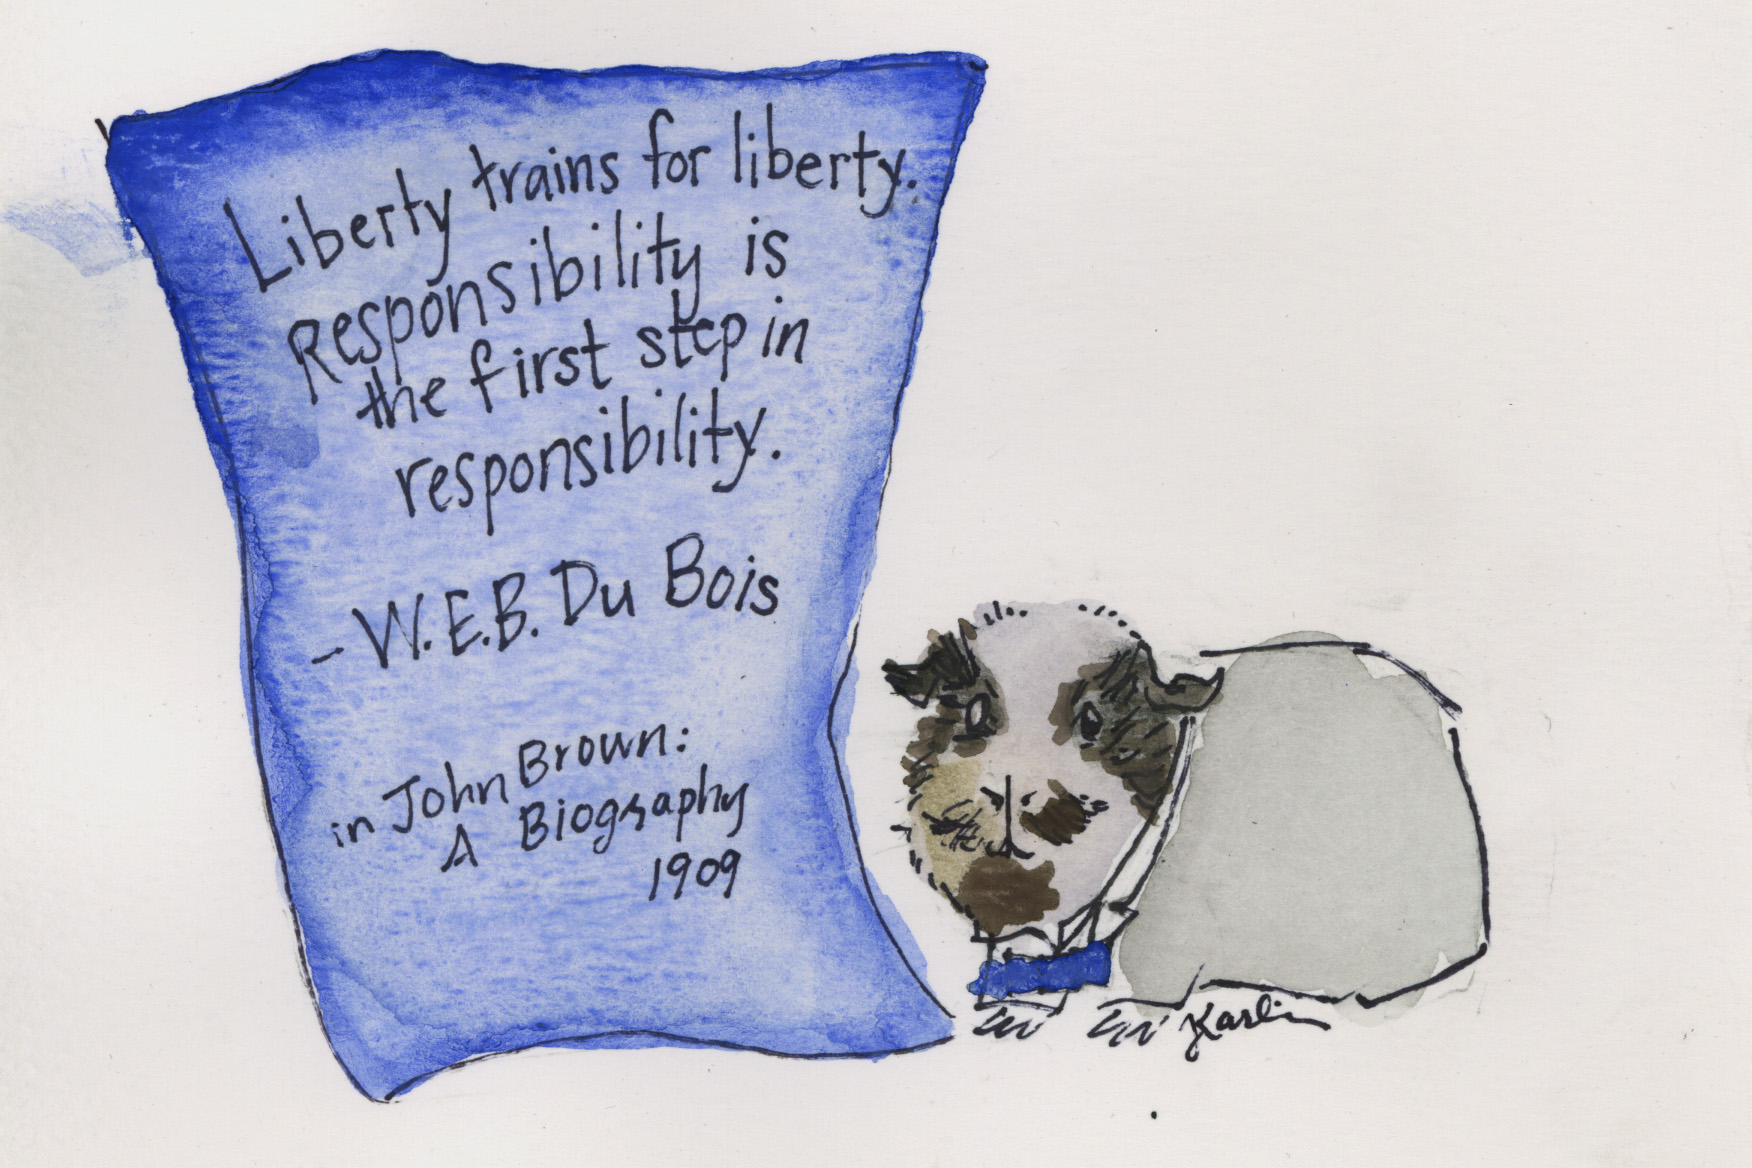 Liberty trains for liberty.
Responsibility is
the first step in
responsibility.
- W.E.B. Du Bois
in John Brown:
A Biography
1909
Karlin